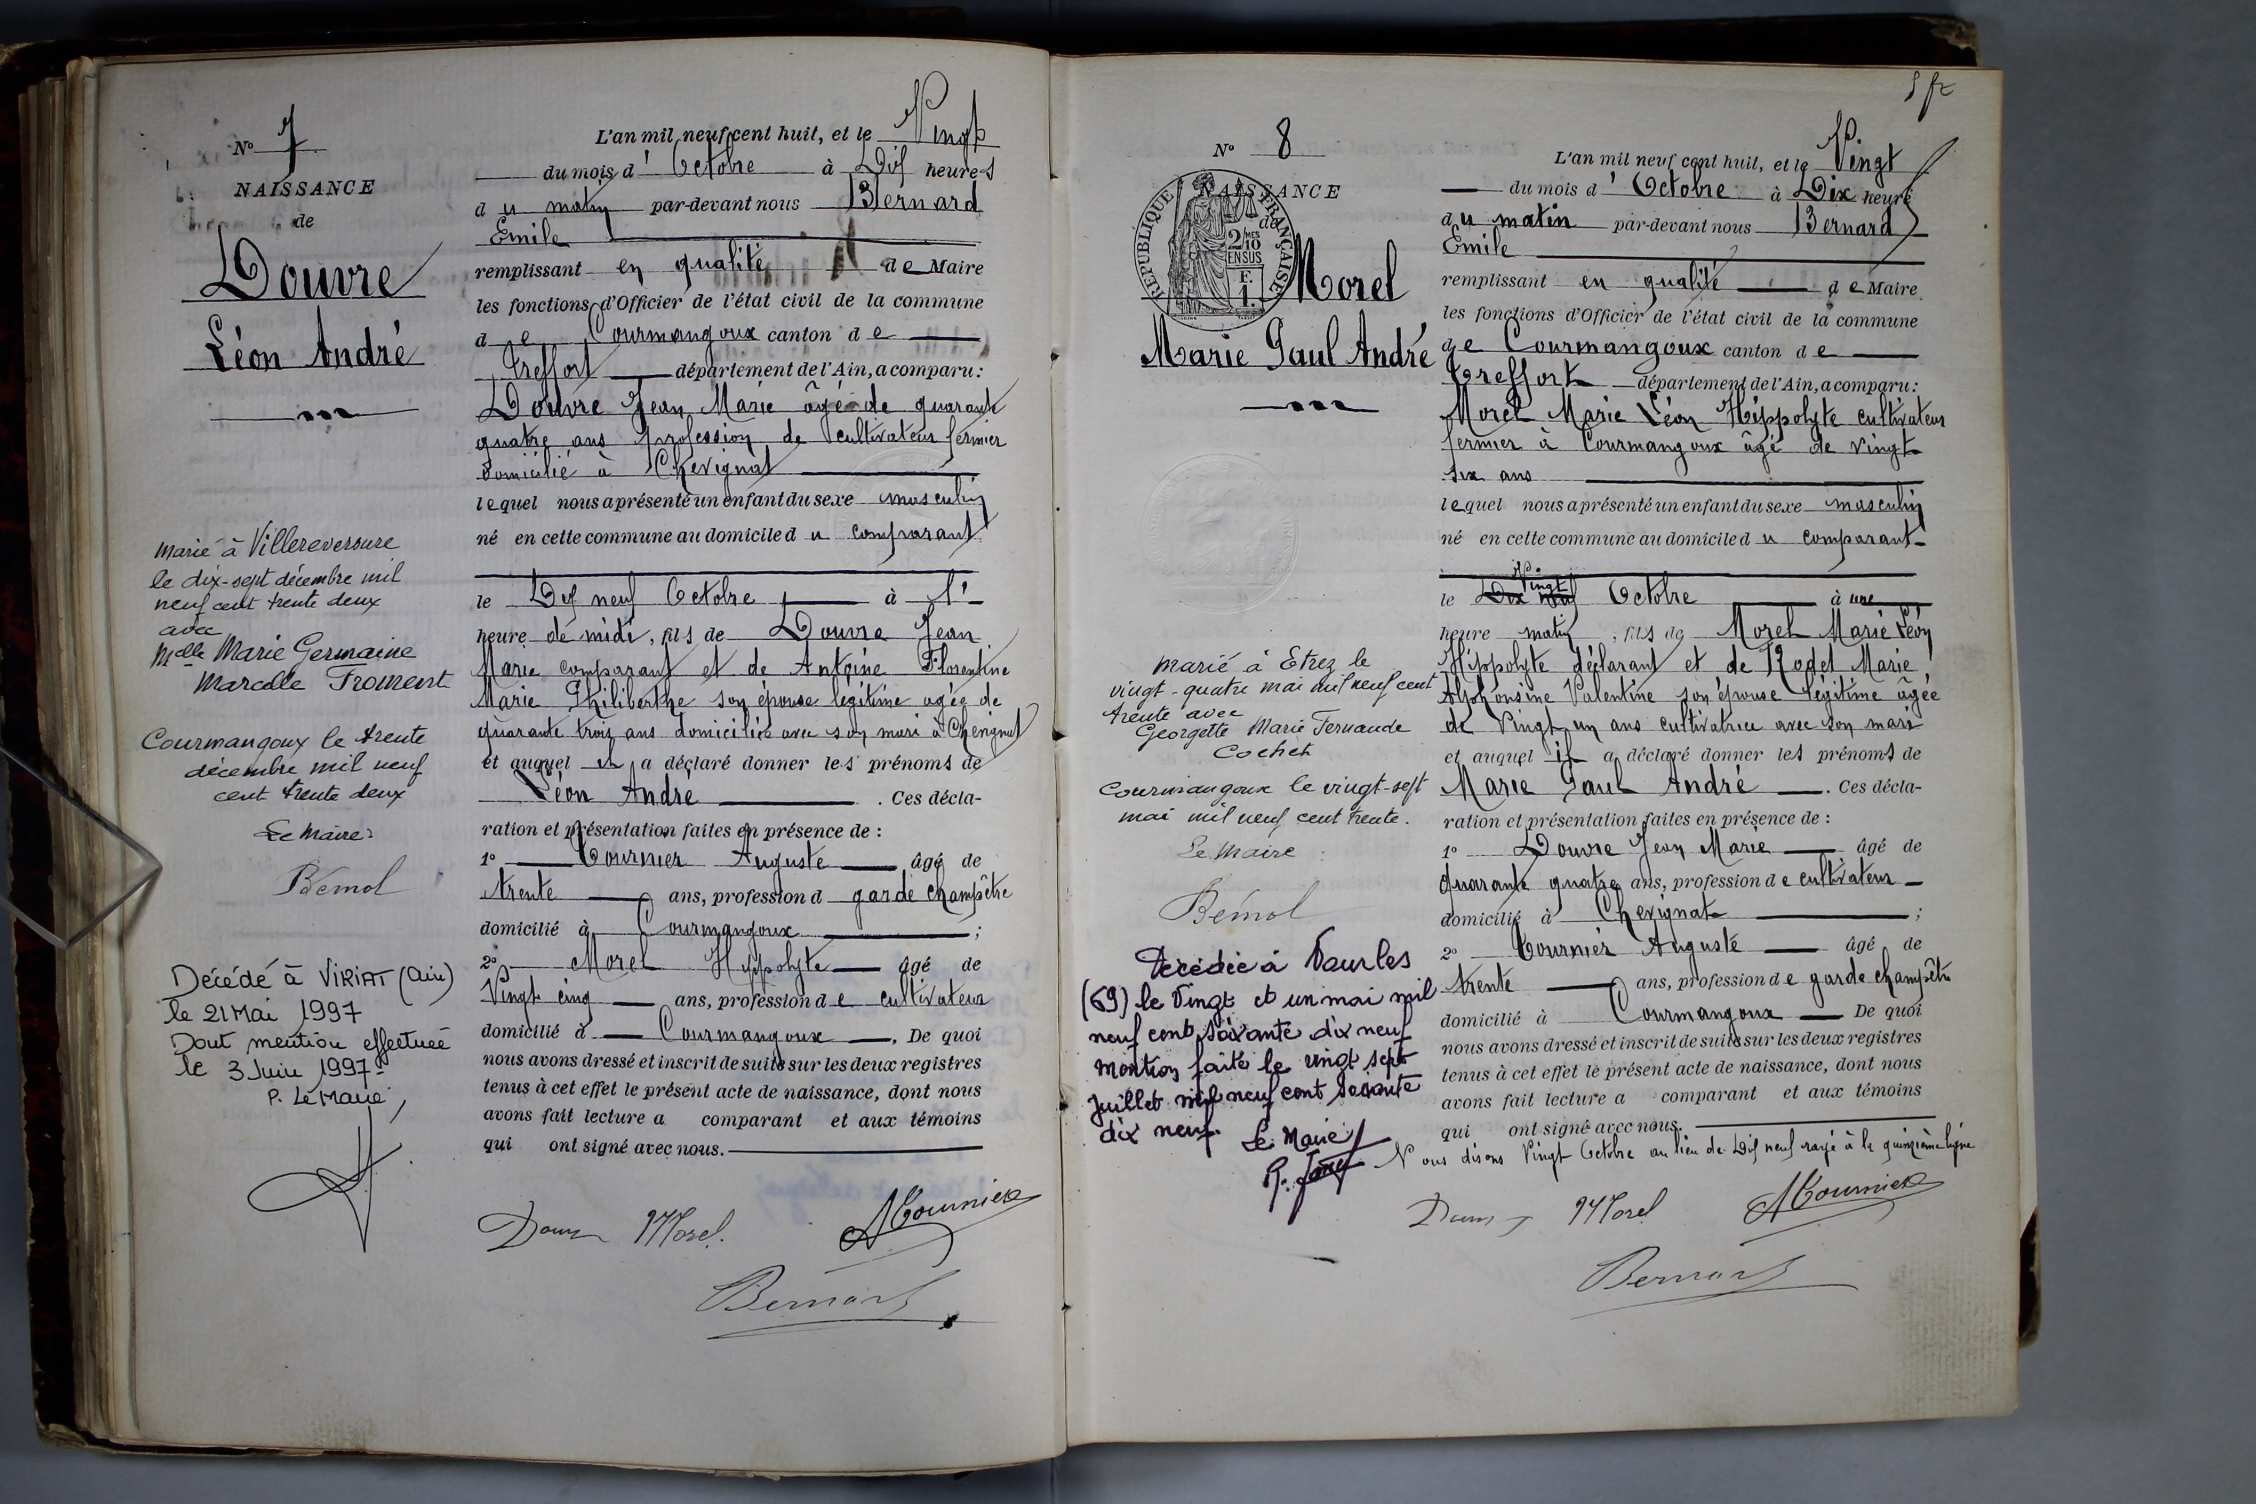 N° 7
NAISSANCE
de
Douvre
Léon André
L'an mil neuf cent huit, et le Vingt
du mois d' Octobre à Dix heures
du matin par-devant nous Bernard
Emile
remplissant en qualité de Maire
les fonctions d'Officier de l'état civil de la commune
de Courmangoux canton de
Treffort département de l'Ain, a comparu :
Douvre Jean Marie âgé de quarante
quatre ans profession de cultivateur fermier
domicilié à Chevignat
lequel nous a présenté un enfant du sexe masculin
né en cette commune au domicile du comparant
le Dix neuf Octobre à l'
heure de midi, fils de Douvre Jean
Marie comparant et de Antoine Florentine
Marie Philiberthe son épouse légitime agée de
quarante trois ans domiciliée avec son mari à Chevignat
et auquel il a déclaré donner les prénoms de
Léon André . Ces décla-
ration et présentation faites en présence de :
1° Tournier Auguste âgé de
trente ans, profession d garde champêtre
domicilié à Courmangoux ;
2° Morel Hippolyte âgé de
Vingt cinq ans, profession de cultivateur
domicilié à Courmangoux . De quoi
nous avons dressé et inscrit de suite sur les deux registres
tenus à cet effet le présent acte de naissance, dont nous
avons fait lecture a comparant et aux témoins
qui ont signé avec nous.
Douvre Morel. ATournier
Bernard
Marié à Villereversure
le dix-sept décembre mil
neuf cent trente deux
avec
Melle Marie Germaine
Marcelle Froment
Courmangoux le trente
décembre mil neuf
cent trente deux
Le Maire :
Bémol
Décédé à VIRIAT (Ain)
le 21 Mai 1997
Dont mention effectuée
le 3 Juin 1997
P. Le Maire,
5 fr
N° 8
NAISSANCE
de
REPUBLIQUE FRANÇAISE
2/10 MES
EN SUS
F.
1.
Morel
Marie Paul André
L'an mil neuf cent huit, et le Vingt
du mois d' Octobre à Dix heure
du matin par-devant nous Bernard
Emile
remplissant en qualité de Maire
les fonctions d'Officier de l'état civil de la commune
de Courmangoux canton de
Treffort département de l'Ain, a comparu :
Morel Marie Léon Hippolyte cultivateur
fermier à Courmangoux âgé de vingt
six ans
lequel nous a présenté un enfant du sexe masculin
né en cette commune au domicile du comparant
Vingt
le Dix neuf Octobre à une
heure matin, fils de Morel Marie Léon
Hippolyte déclarant et de Rodet Marie
Alphonsine Valentine son épouse légitime âgée
de Vingt un ans cultivatrice avec son mari
et auquel il a déclaré donner les prénoms de
Marie Paul André . Ces décla-
ration et présentation faites en présence de :
1° Douvre Jean Marie âgé de
quarante quatre ans, profession de cultivateur
domicilié à Chevignat ;
2° Tournier Auguste âgé de
trente ans, profession de garde champêtre
domicilié à Courmangoux De quoi
nous avons dressé et inscrit de suite sur les deux registres
tenus à cet effet le présent acte de naissance, dont nous
avons fait lecture a comparant et aux témoins
qui ont signé avec nous.
Nous disons Vingt Octobre au lieu de Dix neuf rayé à la quinzième ligne
Douvre Morel ATournier
Bernard
Marié à Etrez le
vingt-quatre mai mil neuf cent
trente avec
Georgette Marie Fernande
Cochet
Courmangoux le vingt-sept
mai mil neuf cent trente.
Le Maire :
Bémol
Décédé à Vaurles
(69) le Vingt et un mai mil
neuf cent soixante dix neuf
mention faite le vingt sept
Juillet mil neuf cent soixante
dix neuf. Le Maire